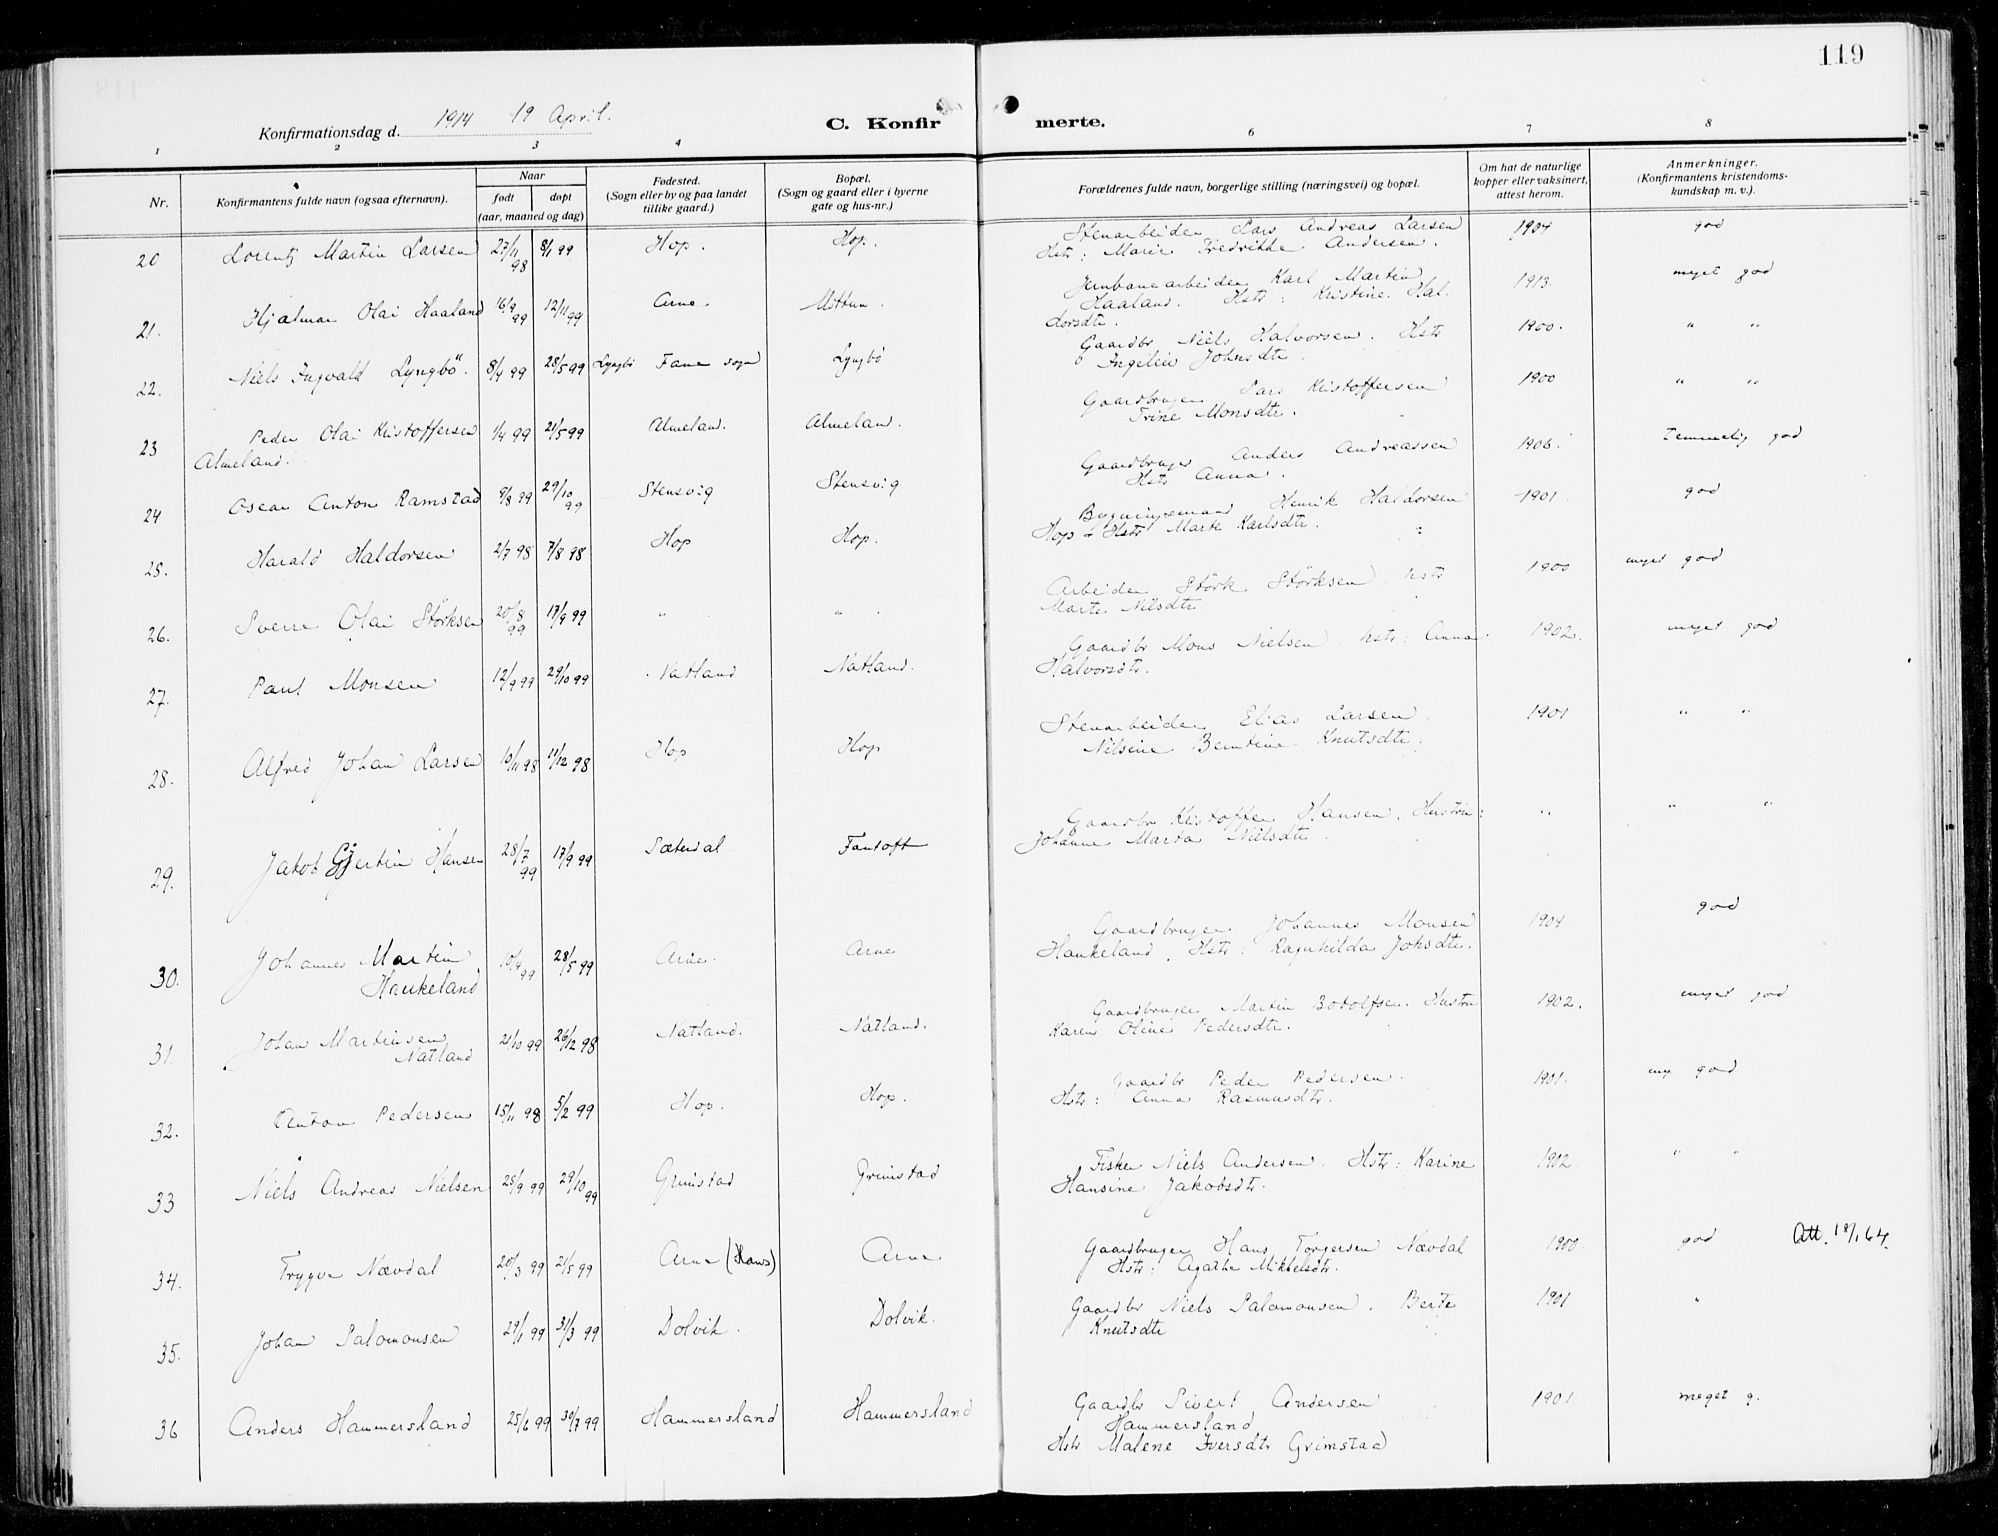 119
Konfirmationsdag d. 1914 19 April.
C. Konfirmerte.
1 2 3 4 5 6 7 8
Nr.
Konfirmantens fulde navn (ogsaa efternavn).
Naar
født døpt
(aar, maaned og dag)
Fødested.
(Sogn eller by og paa landet
tillike gaard.)
Bopæl.
(Sogn og gaard eller i byerne
gate og hus-nr.)
Forældrenes fulde navn, borgerlige stilling (næringsvei) og bopæl.
Om hat de naturlige
kopper eller vaksinert,
attest herom.
Anmerkninger.
(Konfirmantens kristendoms-
kundskap m. v.).
20 Lorentz Martin Larsen 27/11 98 8/1 99 Hop. Hop. Stenarbeider Lars Andreas Larsen 1904 god
Hstr: Marie Fredrikke Andersen.
21. Hjalmar Olai Haaland 16/9 99 12/11 99 Arne. Mittun. Jernbanearbeider Karl Martin 1913. meget god
Haaland. Hstr: Kristine Hal-
dorsdtr.
22. Niels Ingvald Lyngbö. 8/4 99 28/5 99 Lyngbö Fane sogn Lyngbö Gaardbr Niels Halvorsen. Hstr 1900. " "
Ingeleiv Johnsdtr
23 Peder Olai Kristoffersen 1/4 99 21/5 99 Almeland. Almeland. Gaardbruger Lars Kristoffersen 1900 " "
Almeland. Trine Monsdtr.
24 Oscar Anton Ramstad 9/8 99 29/10 99 Stensvig Stensvig Gaardbruger Anders Andreassen 1906. temmelig god
Hstr Anna.
25. Harald Haldorsen 2/7 98 7/8 98 Hop Hop. Bygningsmand Henrik Haldorsen 1901. god
Hop - Hstr Marte Karlsdtr.
26. Sverre Olai Störksen 20/8 99 17/9 99 " " Arbeider Störk Störksen, hstr 1900 meget god
Marte Nilsdtr
27. Paul Monsen 12/9 99 29/10 99 Natland Natland. Gaardbr Mons Nielsen, hstr: Anna 1902. meget god
Halvorsdtr.
28. Alfred Johan Larsen 10/11 98 11/12 98 Hop Hop Stenarbeider Elias Larsen, 1901 " "
Nilsine Berntine Knutsdtr.
29. Jakob Gjertin Hansen 28/7 99 17/9 99 Sæterdal Fantoft Gaardbr Kristoffer Hansen. Hustru: " " "
Johanne Marta Nielsdtr
30. Johannes Martin 10/4 99 28/5 99 Arne. Arne Gaardbruger Johannes Monsen 1904. god
Haukeland Haukeland, Hstr: Ragnhilda Johsdtr.
31. Johan Martinsen 21/10 99 26/12 98 Natland. Natland. Gaardbruger Martin Botolfsen. Hustru 1902. meget god
Natland Karen Oline Pedersdtr.
32. Anton Pedersen 15/11 98 5/2 99 Hop. Hop. Gaardbr Peder Pedersen. 1901. mg god
Hstr: Anna Rasmusdtr.
33 Niels Andreas Nielsen 25/9 99 29/10 99 Grimstad Grimstad Fisker Niels Andersen. Hstr: Karine 1902. " "
Hansine Jakobsdtr.
34. Trygve Nævdal 20/3 99 21/5 99 Arne (Haus) Arne Gaardbruger Hans Torgersen Nævdal 1900. god Att. 18/1 64.
Hstr: Agathe Mikkelsdtr.
35. Johan Salomonsen 29/1 99 31/3 99 Dolvik. Dolvik. Gaardbr Niels Salomonsen. Berte 1901 "
Knutsdtr
36 Anders Hammersland 25/6 99 30/7 99 Hammersland Hammersland Gaardbr Sivert Andersen 1901. meget g.
Hammersland
Hstr Malene Iversdtr Grimstad